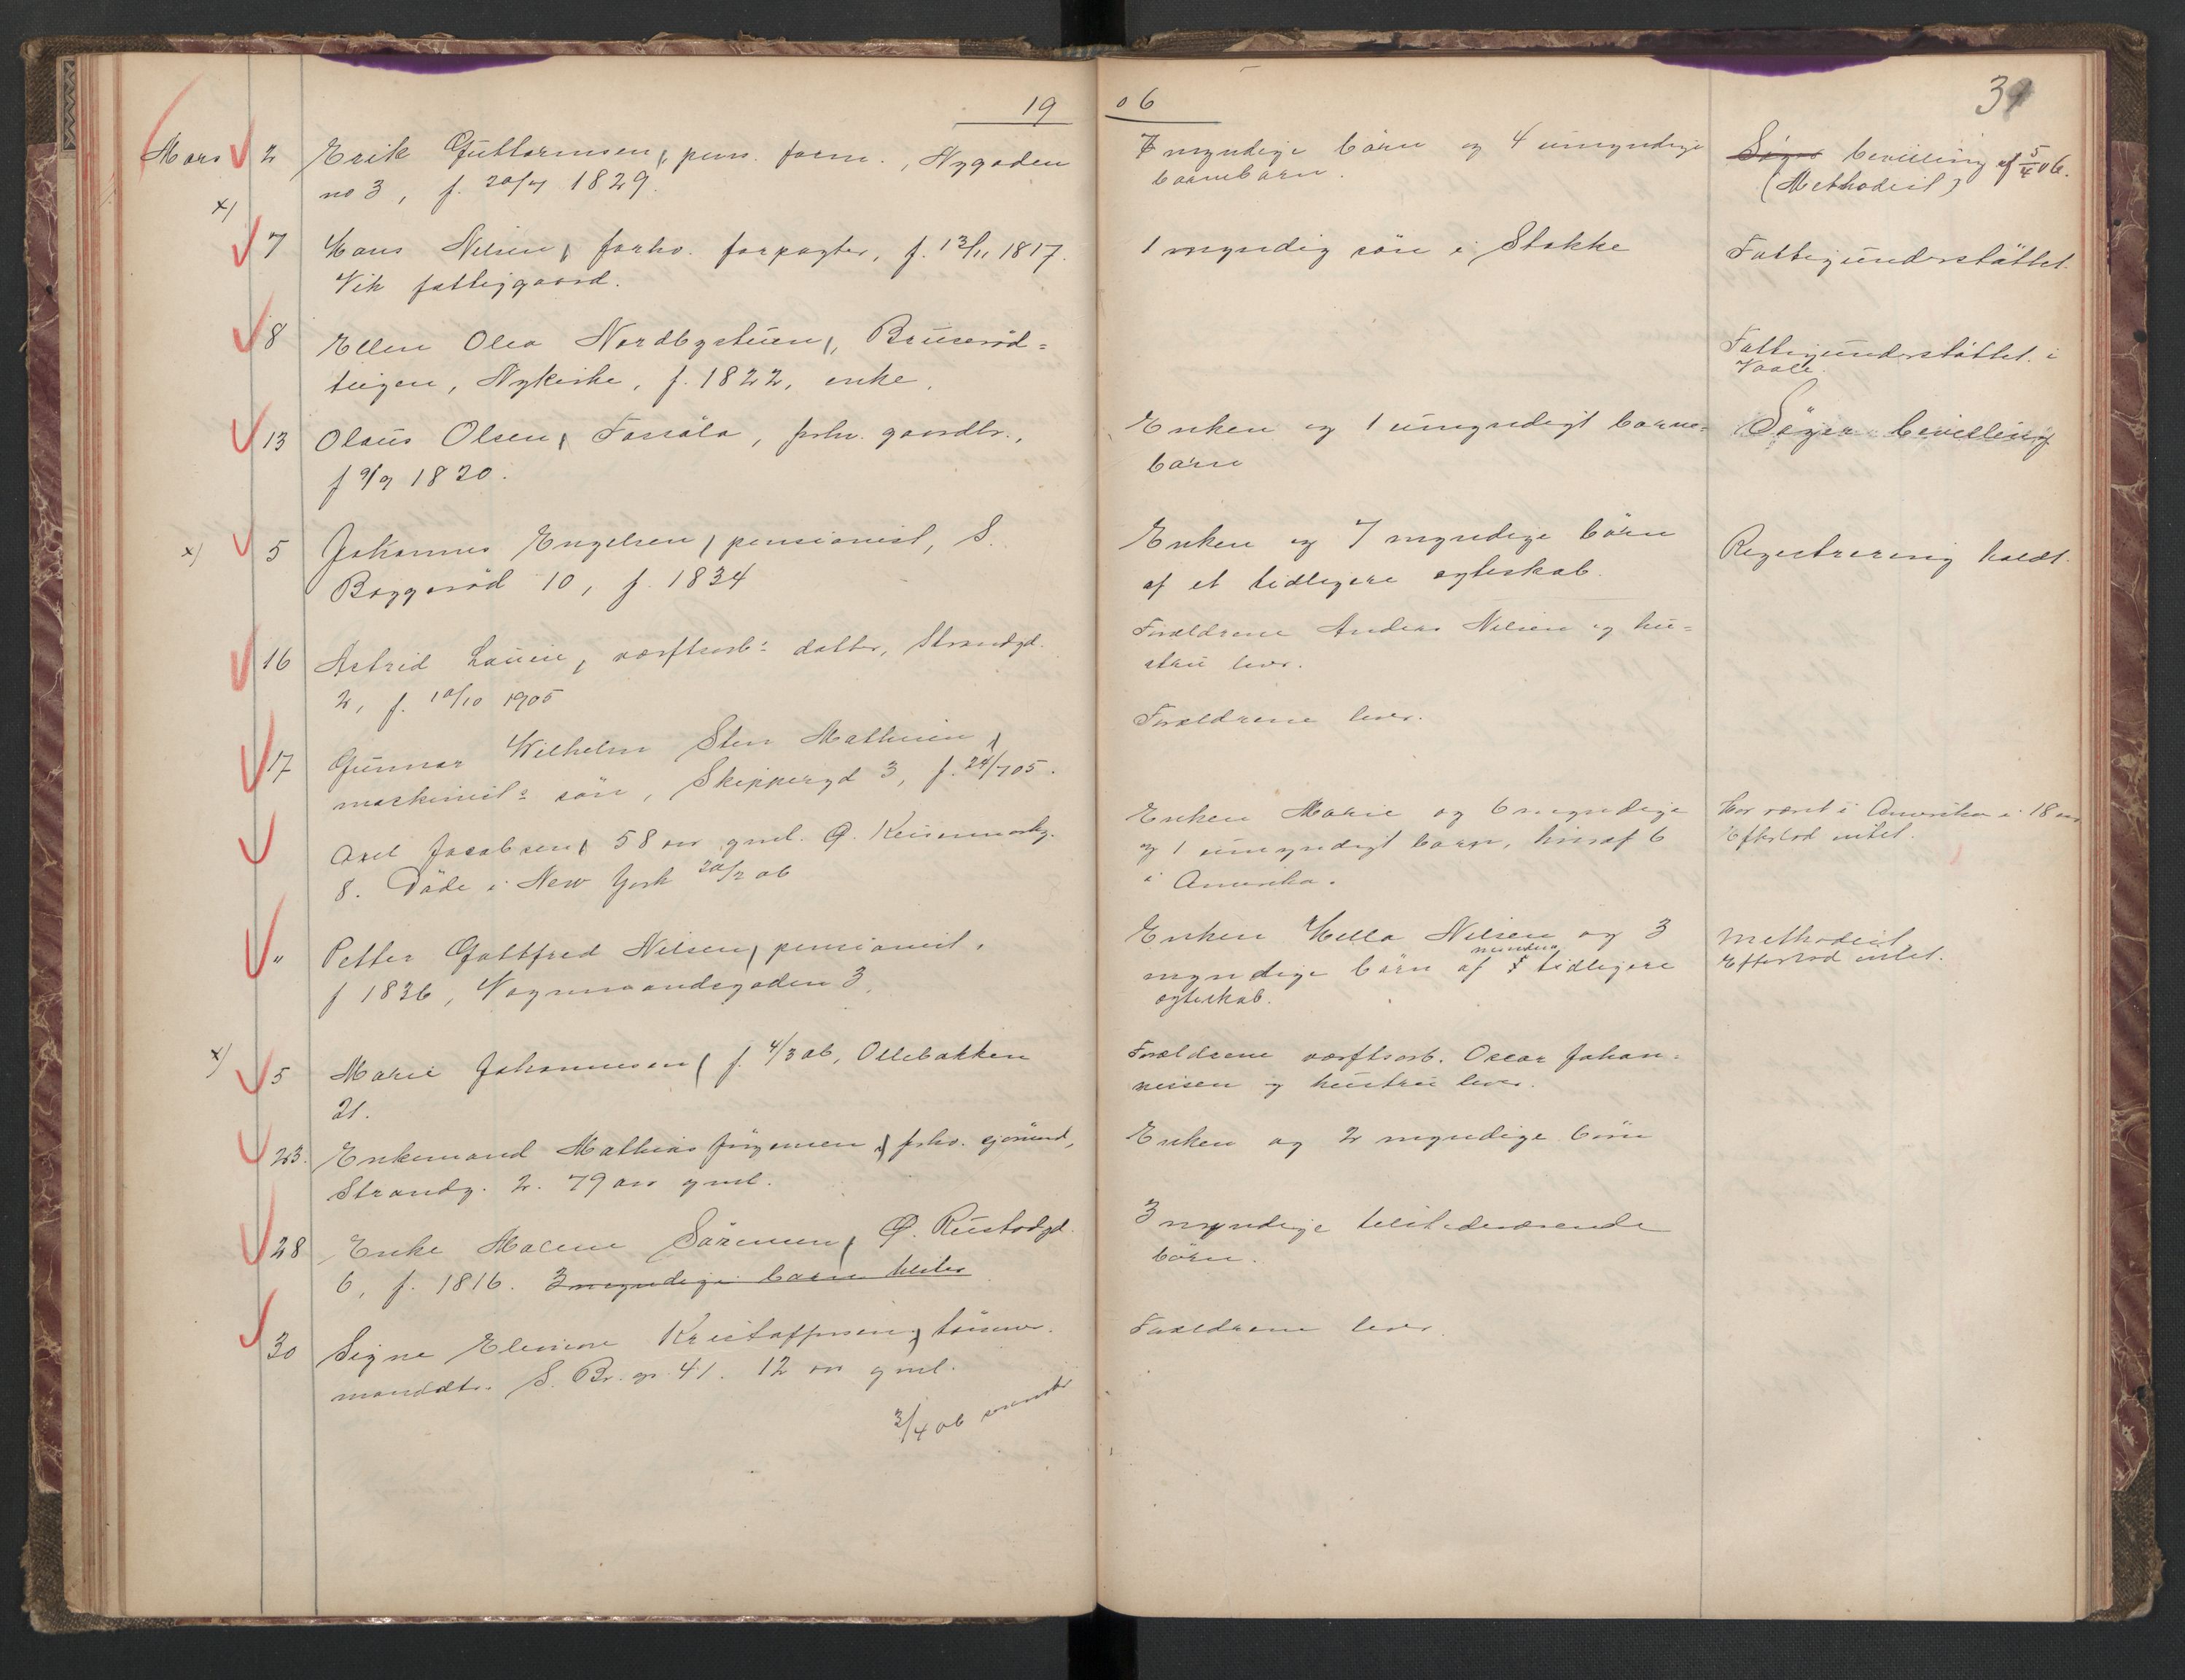 1906
39
Mars 2 Erik Guttormsen, pens. form., Nygaden
no 3, f. 20/4 1829.
7 myndige börn og 4 umyndige
barnebarn.
Söger bevilling af 5/4 06.
(Methodist)
x)
7 Hans Nilsen, forhv. forpagter, f. 13/11 1817.
Vik fattiggaard.
1 myndig sön i Stokke
Fattigunderstöttet.
8 Ellen Olea Nordbystuen, Bruseröd=
teigen, Nykirke, f. 1822, enke.
Fattigunderstöttet i
Vaale.
13 Olaus Olsen, , forhv. gaardbr.,
f 9/9 1820.
Enken og 1 umyndigt barne=
barn
Söger bevilling
x) 5 Johannes Engelsen, pensionist, S.
Baggeröd 10, f. 1834
Enken og 7 myndige börn
af et tidligere egteskab.
Registrering holdt.
16 Astrid , verftsarb: datter, Strandgd.
2, f. 10/10 1905
Forældrene Anders Nilsen og hu=
stru lever.
17 Gunnar Wilhelm Sten Mathisen,
maskinist: sön, Skippergd 3, f. 24/7 05.
Forældrene lever.
Axel Jacobsen, 58 aar gml. Ø.
8. Döde i New York 20/2 06
Enken Marie og 6 myndige
og 1 umyndigt barn, hvoraf 6
i Amerika.
Har været i Amerika i 18 aar
Efterlod intet.
" Petter Gottfred Nilsen, pensionist,
f 1836, Vognmandsgaden 3.
Enken Hella Nilsen og 3
myndige börn af tidligere
egteskab.
Methodist,
Efterlod intet.
x)
5 Marie Johannesen, f. 4/3 06, Ollebakken
21.
Forældrene verftsarb. Oscar Johan=
nesen og hustru lever.
23. Enkemand Mathias Jörgensen, forhv. sjömand,
Strandg. 2. 79 aar gml.
Enken og 2 myndige börn
28 Enke Malene Sörensen, Ø. Rustadgd.
6, f. 1816. 3 myndige barn
3 myndige tilstedeværende
börn.
30 Signe Elenore Kristoffersen, tömmer.
mandsdtr. S. Br. g. 41. 12 aar gml.
Forældrene lever.
3/4 06